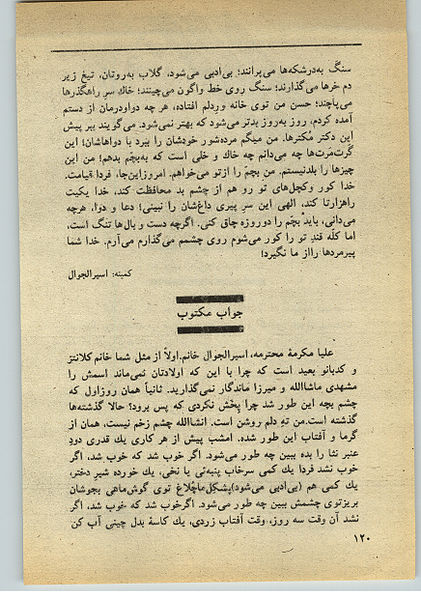 سنگ به‌درشکه‌ها می‌پرانند؛ بی‌ادبی می‌شود، گلاب به‌روتان، تیغ زیر
دم خرها می‌گذارند؛ سنگ روی خط واگون می‌چینند؛ خاك سر راهگذرها
می‌پاچند؛ حسن من توی خانه وردلم افتاده، هر چه دوادرمان از دستم
آمده کردم، روز به‌روز بدتر می‌شود که بهتر نمی‌شود. می‌گویند ببر پیش
این دکتر مکترها. من میگم مرده‌شور خودشان را ببرد با دواهاشان؛ این
گرت‌مرت‌ها چه می‌دانم چه خاك و خلی است که به‌بچم بدهم؛ من این
چیزها را بلدنیستم. من بچم را ازتو می‌خواهم. امروزاین‌جا، فردا قیامت.
خدا کور وکچل‌های تو رو هم از چشم بد محافظت کند، خدا یکیت
راهزارتا کند، الهی این سر پیری داغ‌شان را نبینی؛ دعا و دوا، هرچه
می‌دانی، باید بچم را دوروزه چاق کنی. اگرچه دست و بال‌ها تنگ است،
اما کله قند تو را کور می‌شوم روی چشمم می‌گذارم می‌آرم. خدا شما
پیرمردها رااز ما نگیرد!
کمینه: اسیرالجوال
جواب مکتوب
علیا مکرمهٔ محترمه، اسیرالجوال خانم. اولاً از مثل شما خانم کلانتر
و کدبانو بعید است که چرا با این که اولادتان نمی‌ماند اسمش را
مشهدی ماشاالله و میرزا ماندگار نمی‌گذارید. ثانیاً همان روزاول که
چشم بچه این طور شد چرا پخش نکردی که پس برود؟ حالا گذشته‌ها
گذشته‌است. من ته دلم روشن است. انشاالله چشم زخم نیست، همان از
گرما و آفتاب این طور شده. امشب پیش از هر کاری یك قدری دود
عنبر نثا را بده ببین چه طور می‌شود. اگر خوب شد که خوب شد، اگر
خوب نشد فردا یك کمی سرخاب پنبه‌ئی یا نخی، یك خورده شیر دختر،
یك کمی هم (بی‌ادبی می‌شود)پشکل‌ماچلاغ توی گوش‌ماهی بجوشان
بریزتوی چشمش ببین چه طور می‌شود. اگرخوب شد که خوب شد، اگر
نشد آن وقت سه روز، وقت آفتاب زردی، یك کاسهٔ بدل چینی آب کن
۱۲۰